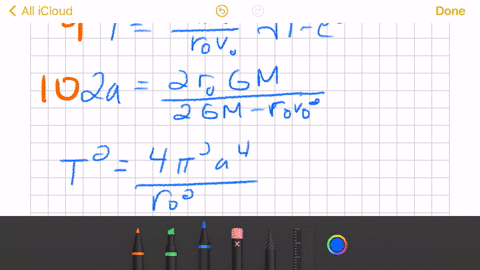 All iCloud
Done
9 T =
r₀v₀
10 2a = 2r₀GM / 2GM - r₀v₀²
T² = 4π²a⁴ / r₀²